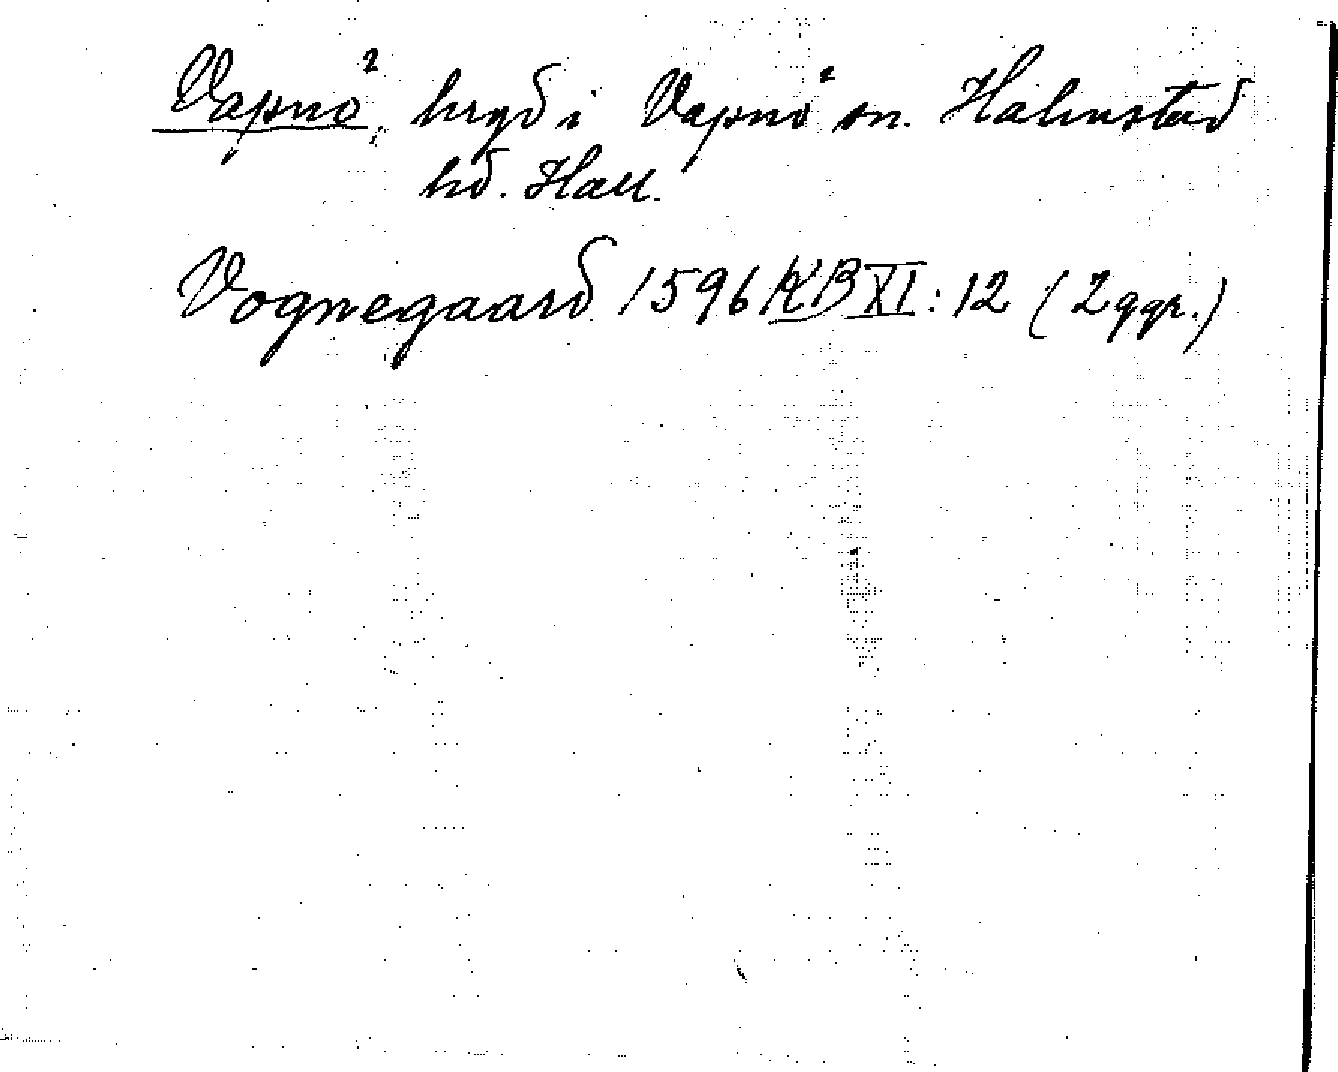 Vapnö, hrgd i Vapnö sn. Halmstad
hd. Hall.
Vognegaard 1596 KB XI: 12 (2 ggr.)